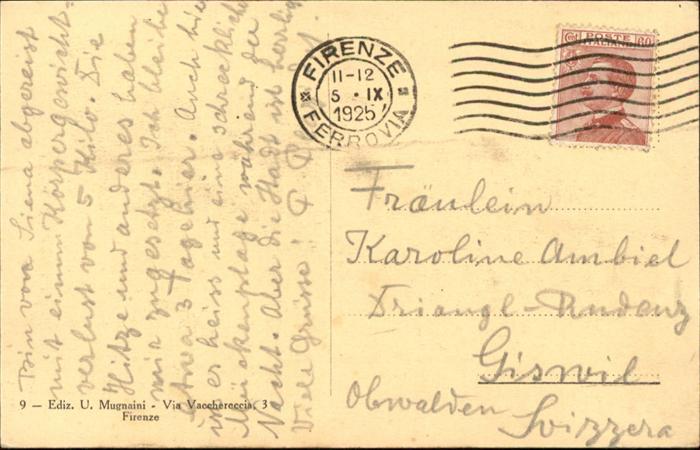 Bin von Siena abgereist
mit einem Körpergewicht-
verlust von 5 Kilo. Die
Hitze und anderes haben
mir zugesetzt. Ich bleibe
etwa 3 Tage hier. Auch hier
ist er heiss und eine schreckliche
Mückenplage während der
Nacht. Aber die Stadt ist herrlich
Viele Grüsse!
FIRENZE
11-12
5 · IX
1925
FERROVIA
POSTE
ITALIANE
60
Fräulein
Karoline Ambiel
Triangl-Rudenz
Giswil
Obwalden
Svizzera
9 — Ediz. U. Mugnaini - Via Vacchereccia, 3
Firenze